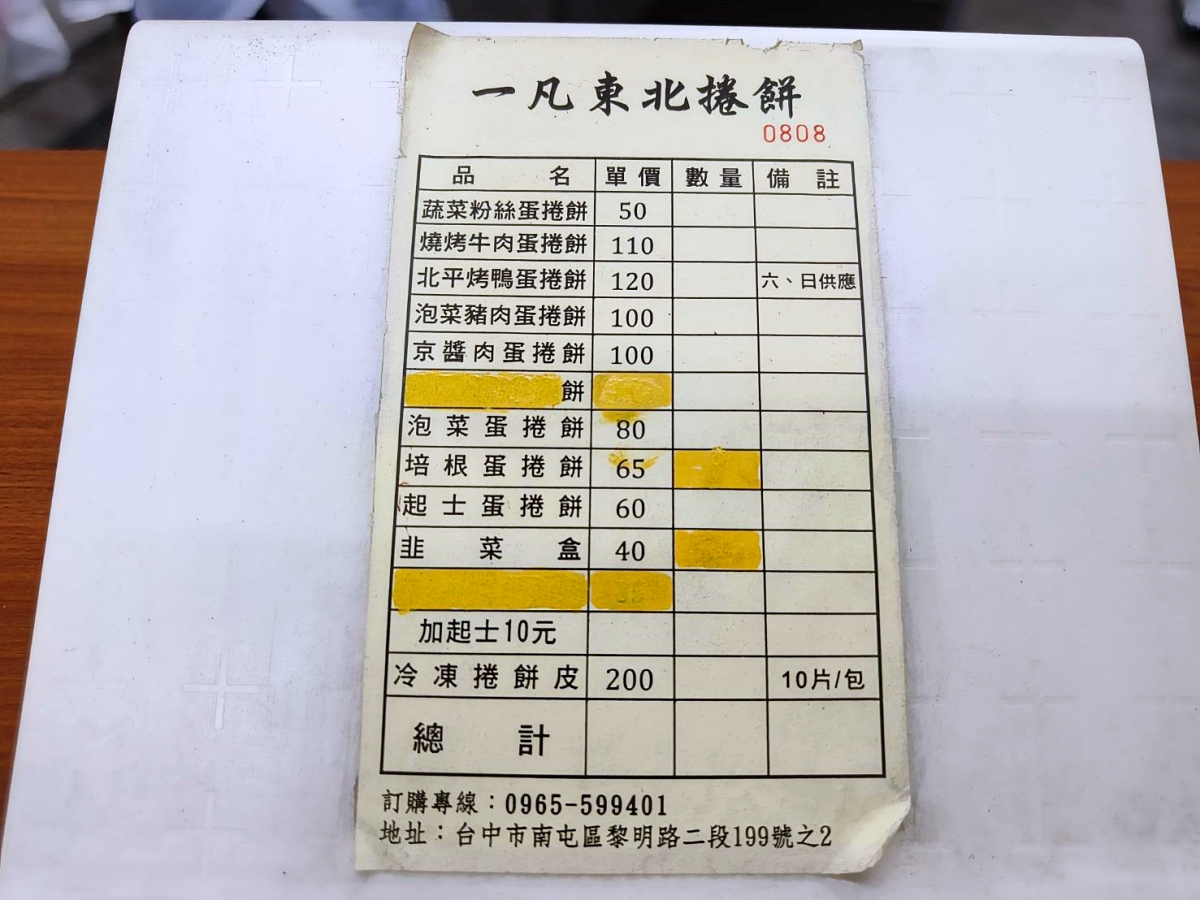 一凡東北捲餅
0808
品名 單價 數量 備註
蔬菜粉絲蛋捲餅 50
燒烤牛肉蛋捲餅 110
北平烤鴨蛋捲餅 120 六、日供應
泡菜豬肉蛋捲餅 100
京醬肉蛋捲餅 100
餅
泡菜蛋捲餅 80
培根蛋捲餅 65
起士蛋捲餅 60
韭菜盒 40
加起士10元
冷凍捲餅皮 200 10片/包
總計
訂購專線：0965-599401
地址：台中市南屯區黎明路二段199號之2